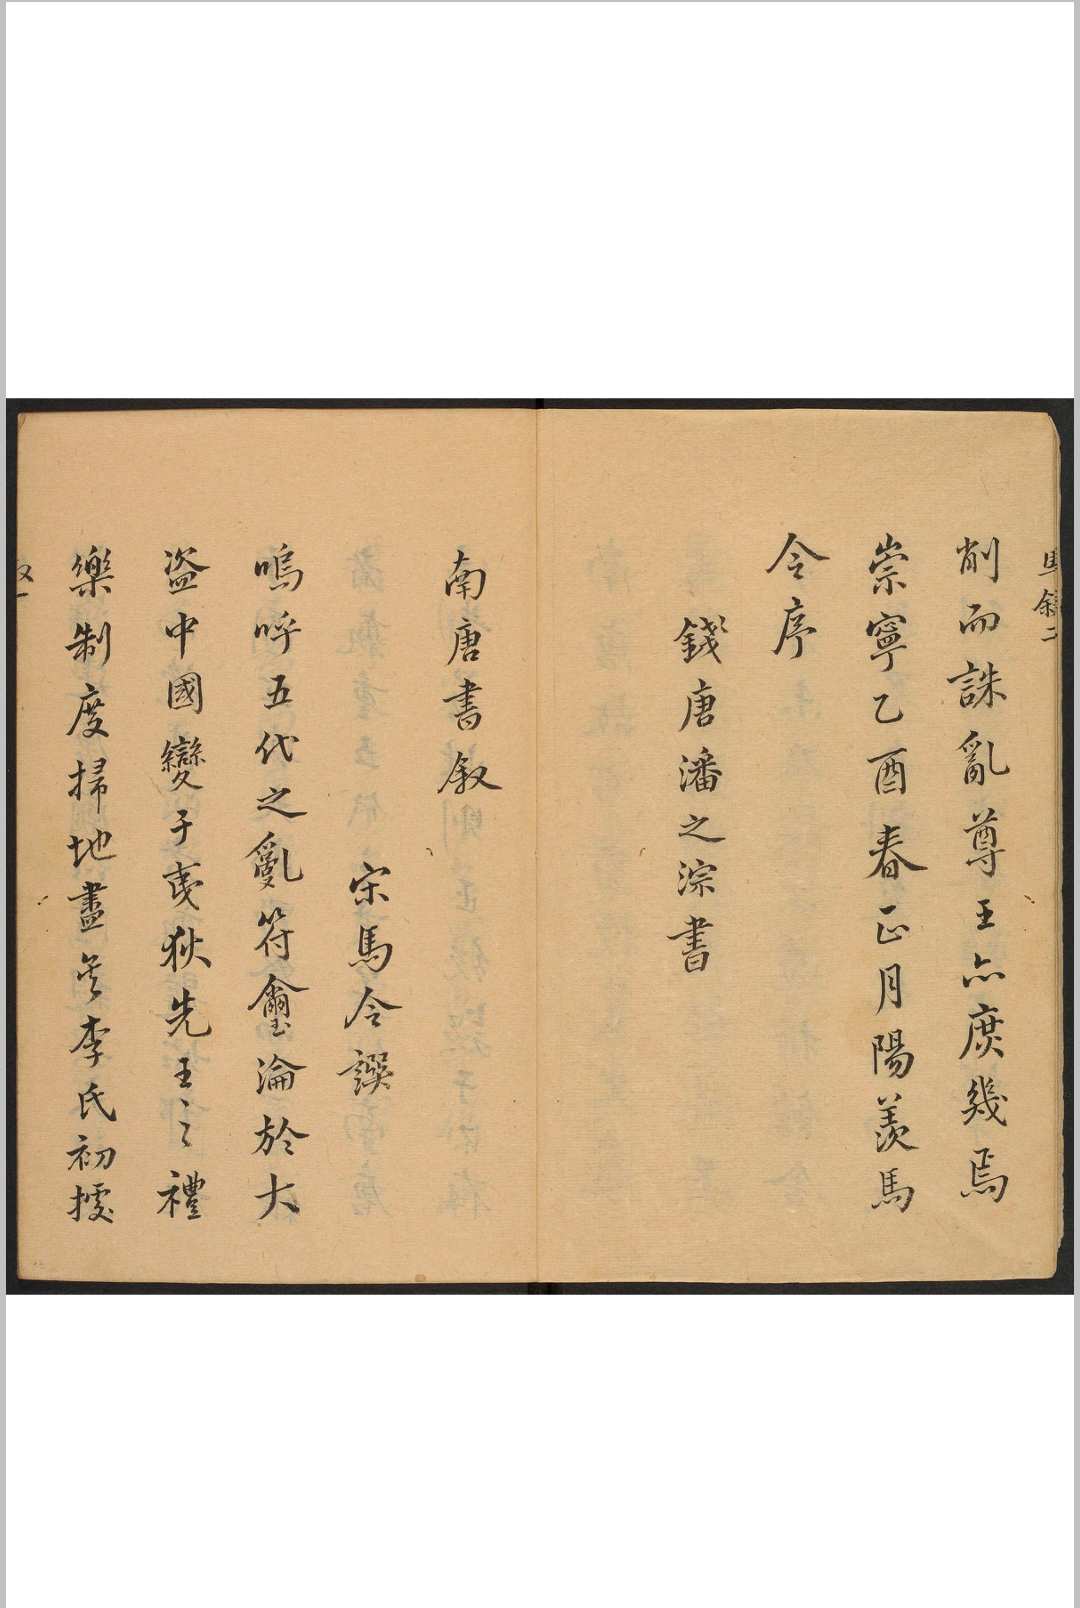 馬叙二
削而誅亂尊王亦庶幾焉
崇寧乙酉春正月陽羨馬
令序
錢唐潘之淙書
南唐書叙
宋馬令譔
嗚呼五代之亂符璽淪於大
盜中國變于夷狄先王之禮
樂制度掃地盡矣李氏初據
叙一